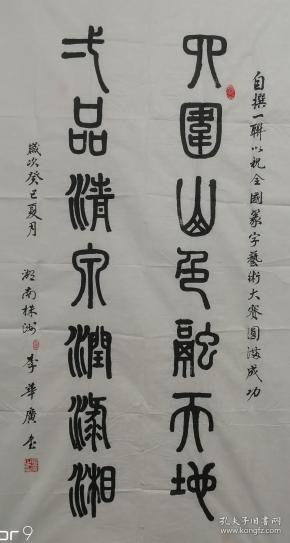 自撰一聯以祝全國篆字藝術大賽圓滿成功
四圍山色融天地
弌品清泉潤瀟湘
歲次癸巳夏月
湖南株洲 李華廣
or 9
孔夫子旧书网